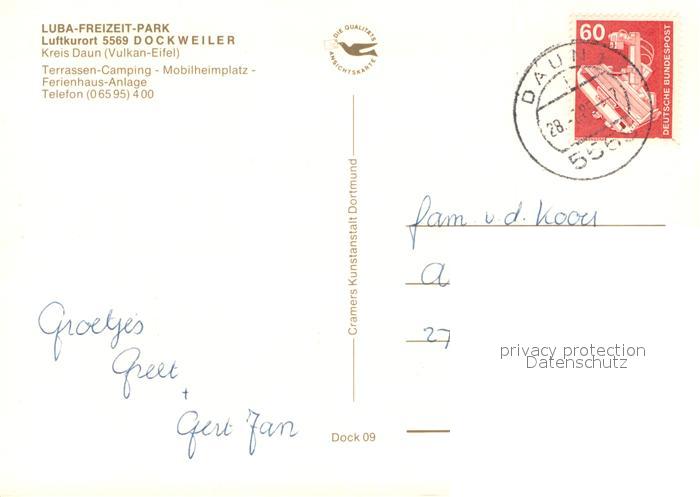 LUBA-FREIZEIT-PARK
Luftkurort 5569 DOCKWEILER
Kreis Daun (Vulkan-Eifel)
Terrassen-Camping - Mobilheimplatz -
Ferienhaus-Anlage
Telefon (0 65 95) 4 00
DIE QUALITÄTS
ANSICHTSKARTE
60
DEUTSCHE BUNDESPOST
DAUN
28.
Cramers Kunstanstalt Dortmund
fam. v.d. Kooy
A
27
privacy protection
Datenschutz
Groetjes
Greet
+
Gert Jan
Dock 09